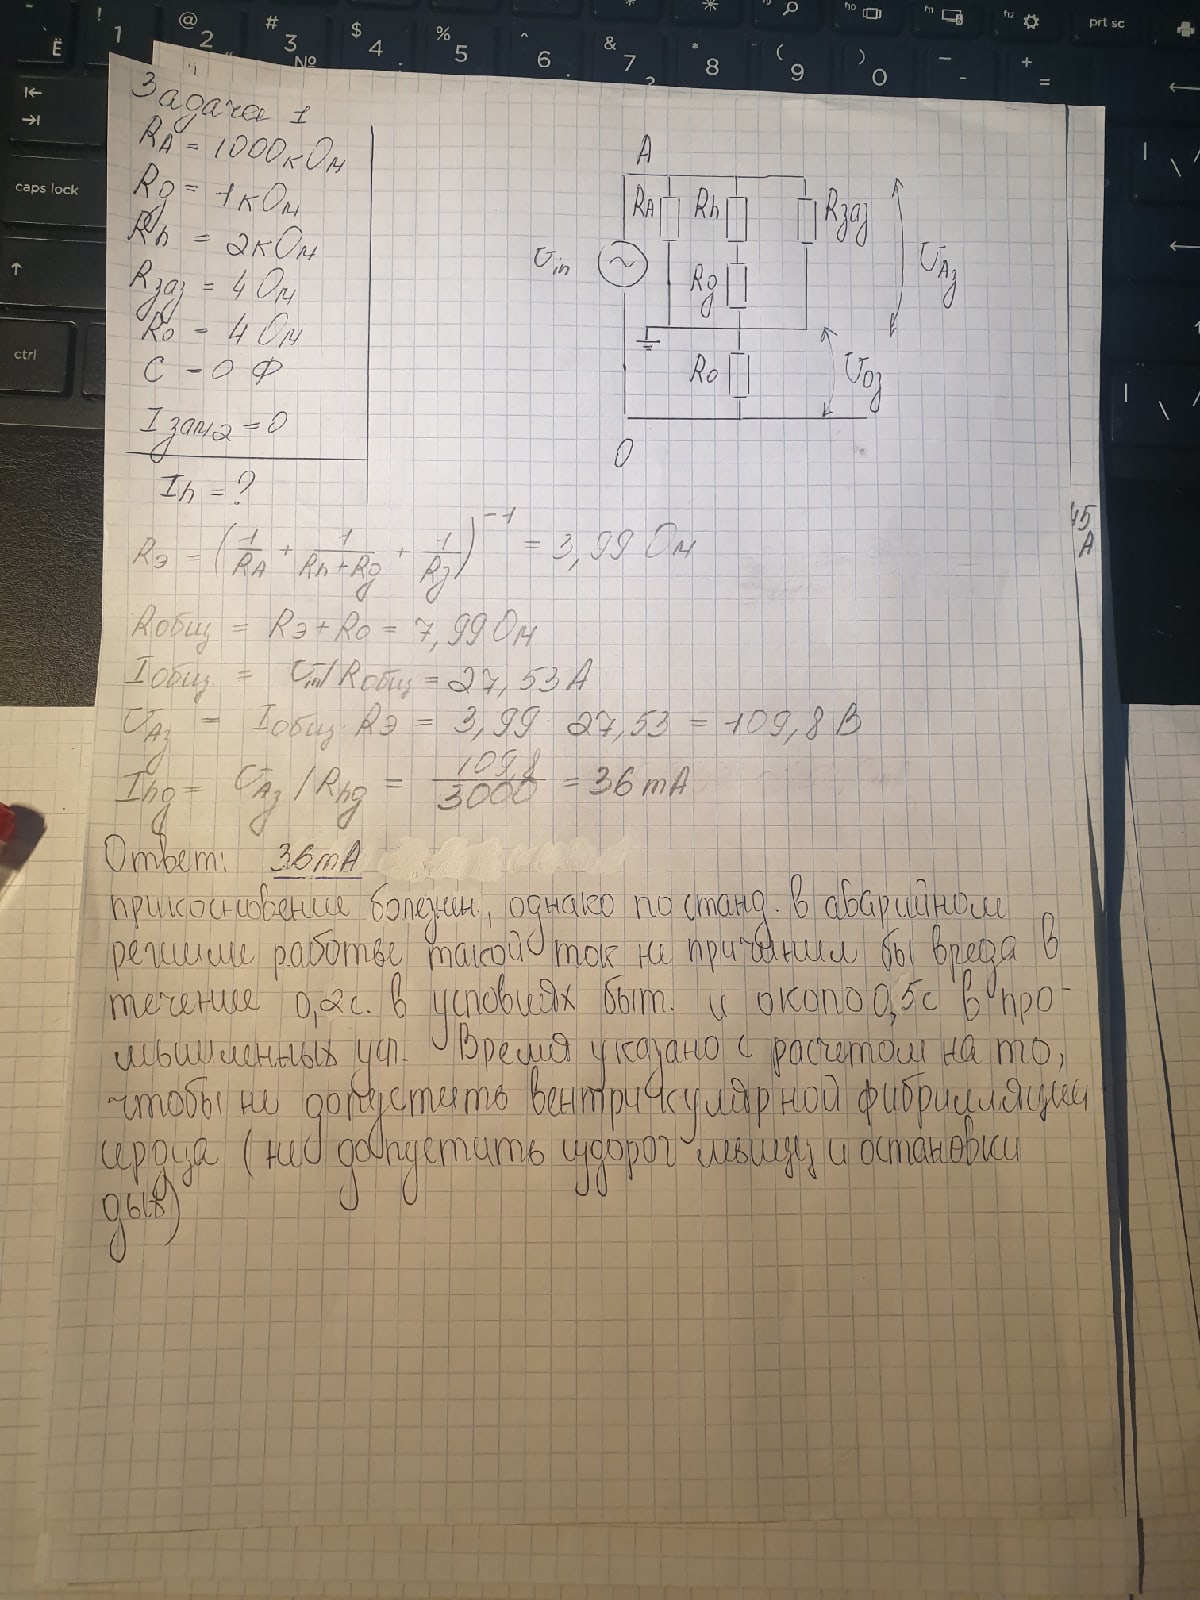 Задача 1
RA = 1000кОм
Rg = 1кОм
Rh = 2кОм
Rзаз = 4 Ом
Ro - 4 Ом
C - 0 Ф
Iзам2 = 0
Ih = ?
A
RA
Rh
Rзаз
Uin
Rg
UAз
Ro
UOз
O
Rэ = (1/RA + 1/Rh+Rg + 1/Rз)^-1 = 3,99 Ом
Rобщ = Rэ + Ro = 7,99 Ом
Iобщ = Uin/Rобщ = 27,53 А
UAз = Iобщ Rэ = 3,99 27,53 = 109,8 В
Ihg = UAз / Rhg = 109,8/3000 = 36 mA
Ответ: 36mA
прикосновение болезн., однако по станд. в аварийном
режиме работы такой ток не причинил бы вреда в
течение 0,2с. в условиях быт. и около 0,5с в про-
мышленных усл. Время указано с расчетом на то,
чтобы не допустить вентрикулярной фибрилляции
сердца (не допустить судорог мышц и остановки
дых)
45
A
caps lock
ctrl
prt sc
Ё
! 1
@ 2 "
# 3 №
$ 4
% 5
^ 6
& 7 ?
* 8
( 9
) 0
- -
+ =
f10
f11
f12
| \
| \